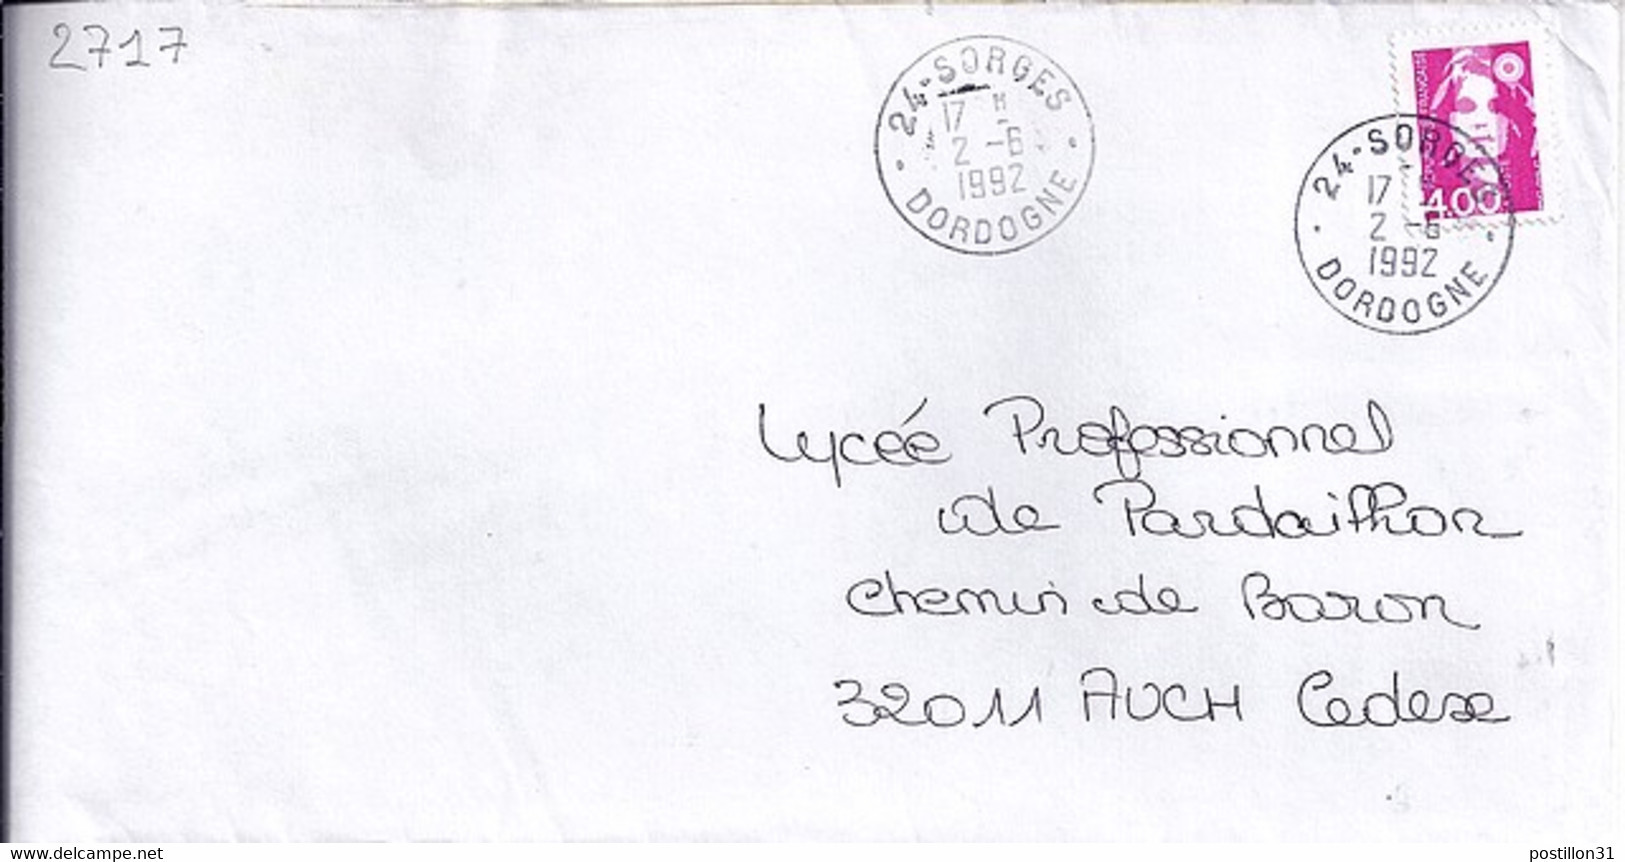 2717
24-SORGES
17 H
2 -6
1992
DORDOGNE
FRANÇAISE
4.00
24-SORGES
17
2 -6
1992
DORDOGNE
Lycée Professionnel
de Pardailhon
Chemin de Baron
32011 AUCH Cedex
www.delcampe.net
postillon31